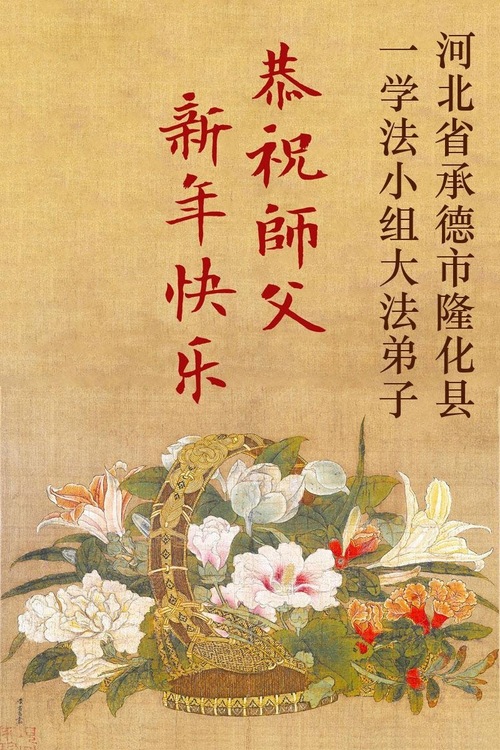 河北省承德市隆化县
一学法小组大法弟子
恭祝師父
新年快乐